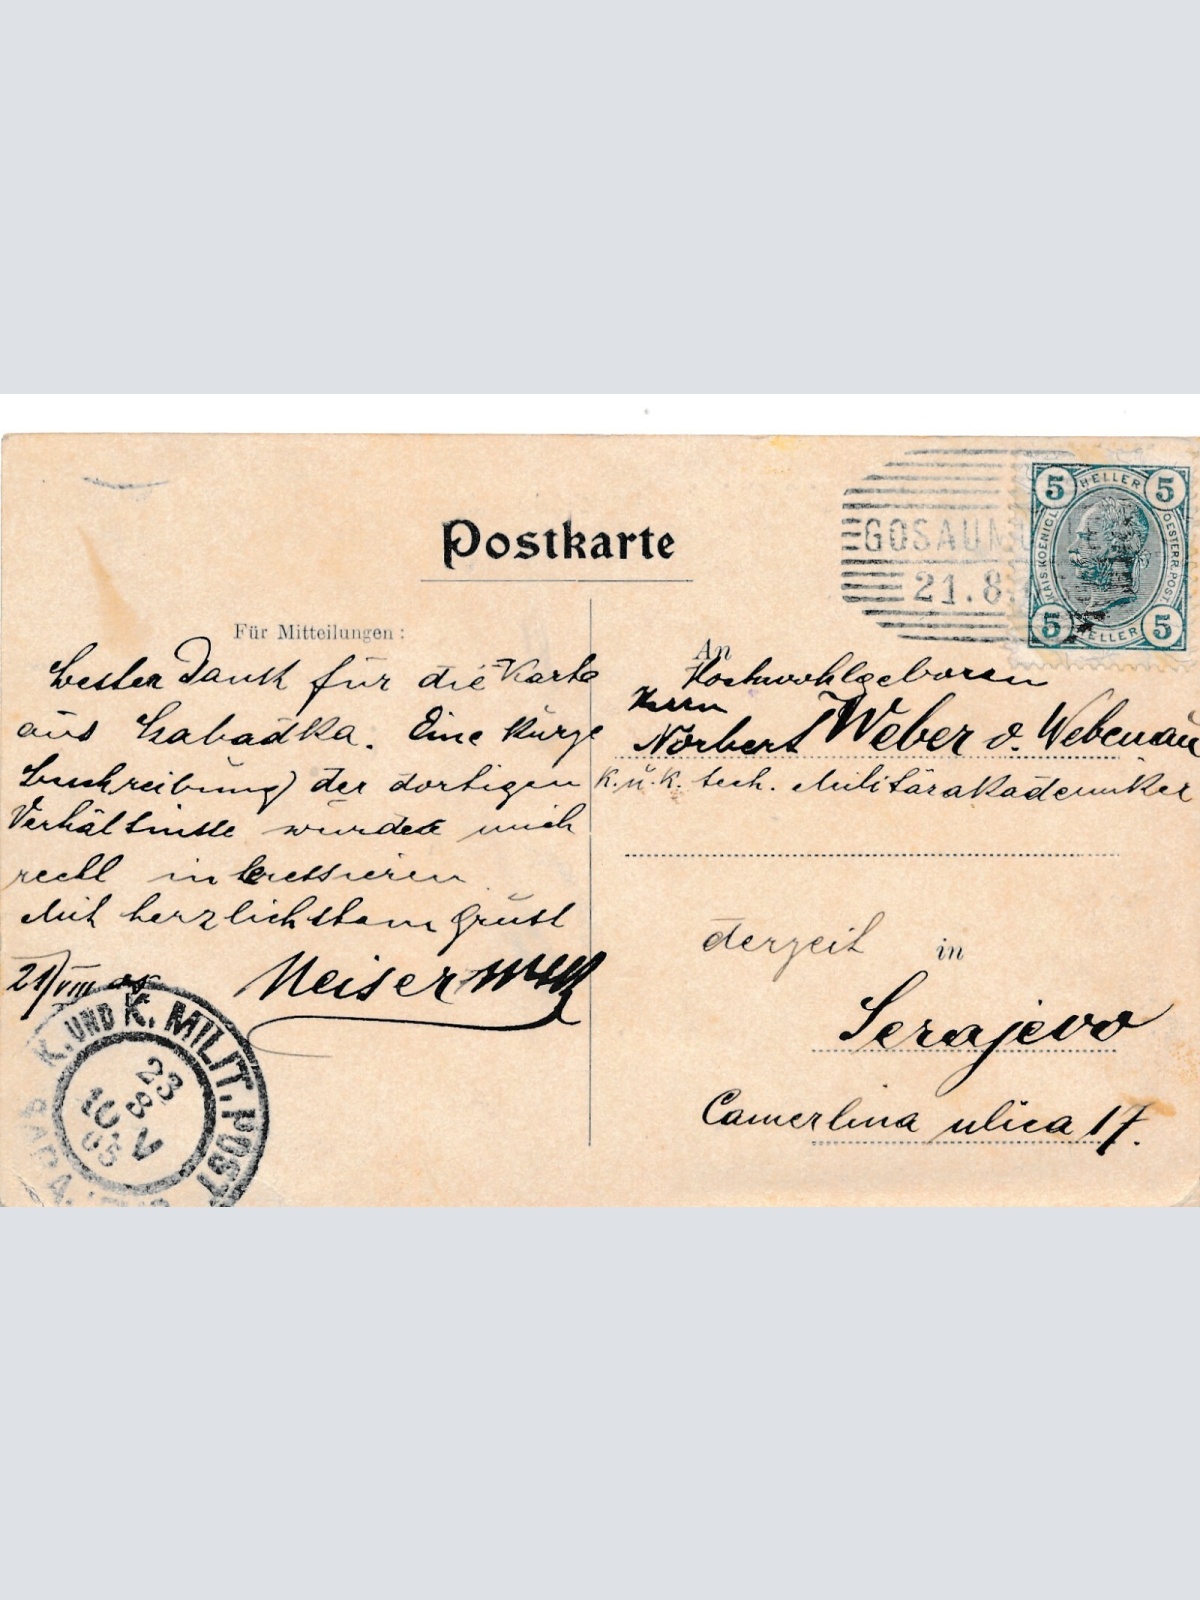 Postkarte
Für Mitteilungen:
besten Dank für die Karte
aus Szabadka. Eine kurze
Beschreibung der dortigen
Verhältnisse würde mich
recht interessieren
Mit herzlichstem Grüsse
21/VIII 05 Meiser
An
Hochwohlgeboren
Herrn
Norbert Weber v. Webenau
k. u. k. tech. Militärakademiker
derzeit in
Serajevo
Camerlina ulica 17.
GOSAUM
21.8.
5 HELLER 5
KAIS. KOENIGL. OESTERR. POST
5 HELLER 5
K. UND K. MILIT. POST
23
8
10 V
05